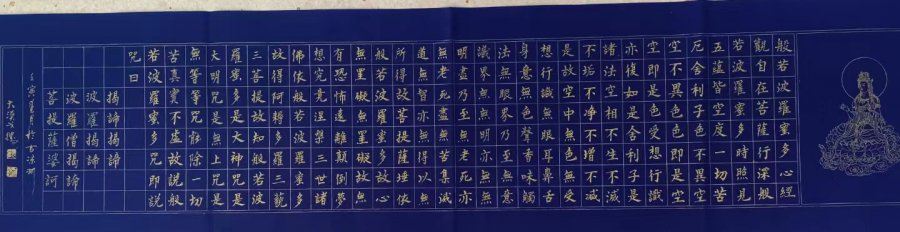 般若波羅蜜多心經
觀自在菩薩行深般
若波羅蜜多時照見
五蘊皆空度一切苦
厄舍利子色不異空
空不異色色即是空
空即是色受想行識
亦復如是舍利子是
諸法空相不生不滅
不垢不淨不增不減
是故空中無色無受
想行識無眼耳鼻舌
身意無色聲香味觸
法無眼界乃至無意
識界無無明亦無無
明盡乃至無老死亦
無老死盡無苦集滅
道無智亦無得以無
所得故菩提薩埵依
般若波羅蜜多故心
無罣礙無罣礙故無
有恐怖遠離顛倒夢
想究竟涅槃三世諸
佛依般若波羅蜜多
故得阿耨多羅三藐
三菩提故知般若波
羅蜜多是大神咒是
大明咒是無上咒是
無等等咒能除一切
苦真實不虛故說般
若波羅蜜多咒即說
咒曰
揭諦揭諦
波羅揭諦
波羅僧揭諦
菩提薩婆訶
壬寅夏月於古